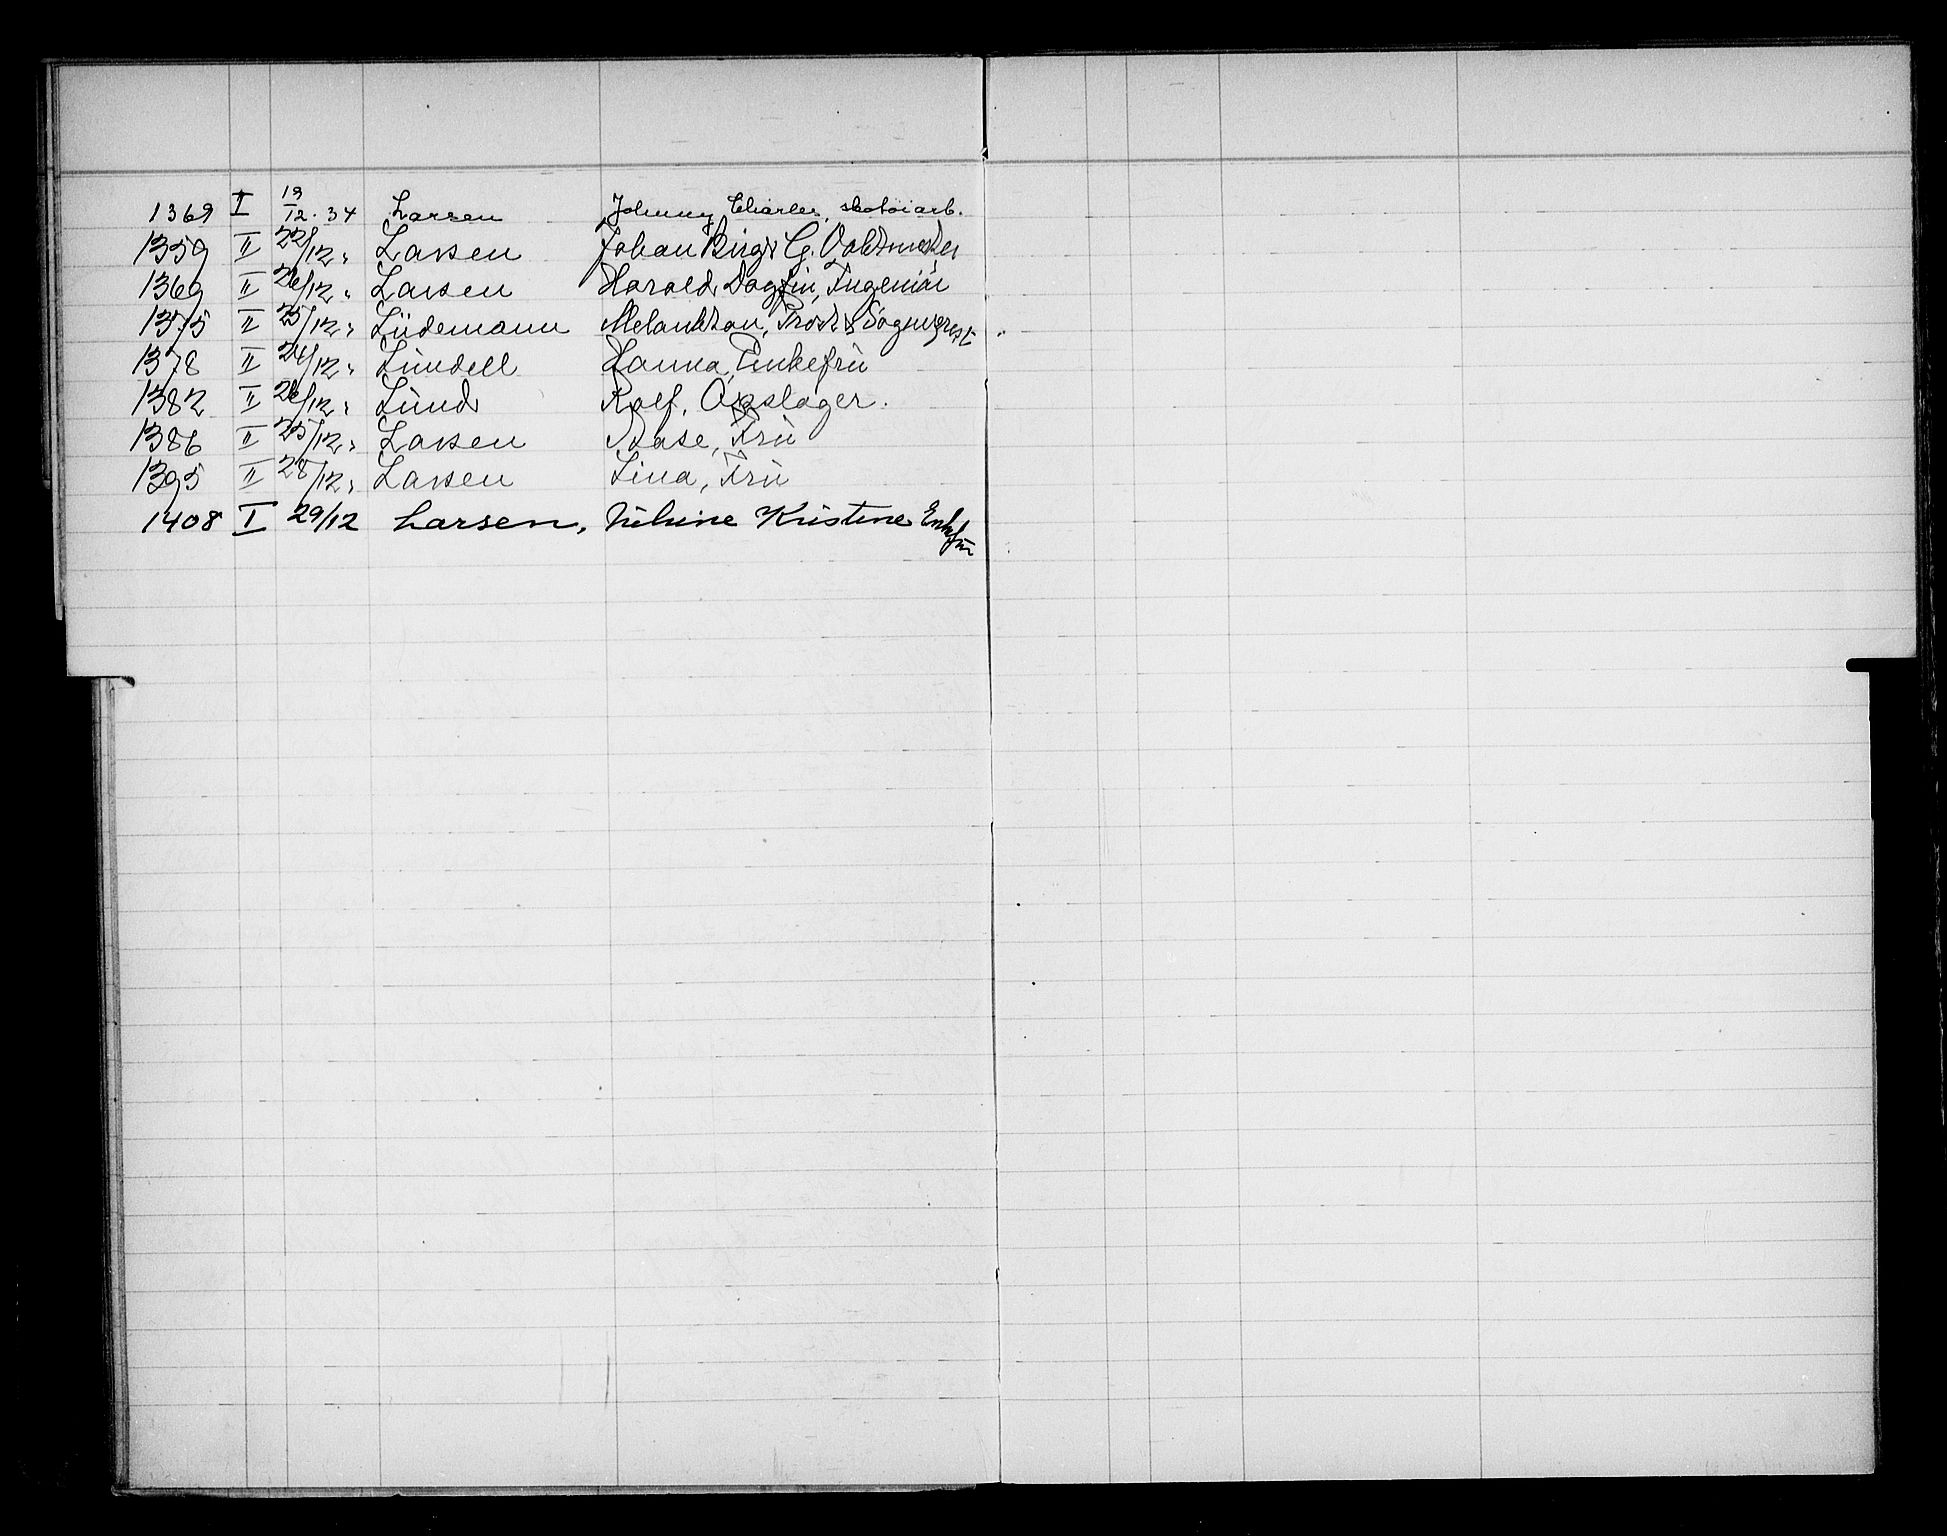 1369 II 19/12.34 Larsen Johnny Charles, skotøiarb.
1359 II 22/12 " Larsen Johan Birger G. Vaktmester
1369 II 26/12 " Larsen Harald Dagfin, Ingeniør
1375 II 25/12 " Lüdemann Melankton, Prost & Sogneprest
1378 II 24/12 " Lundell Hanna, Enkefru
1382 II 26/12 " Lund Rolf, Opslager.
1386 II 25/12 " Larsen Aase, Fru
1395 II 28/12 " Larsen Lina, Fru
1408 I 29/12 Larsen, Kristine Enkefru